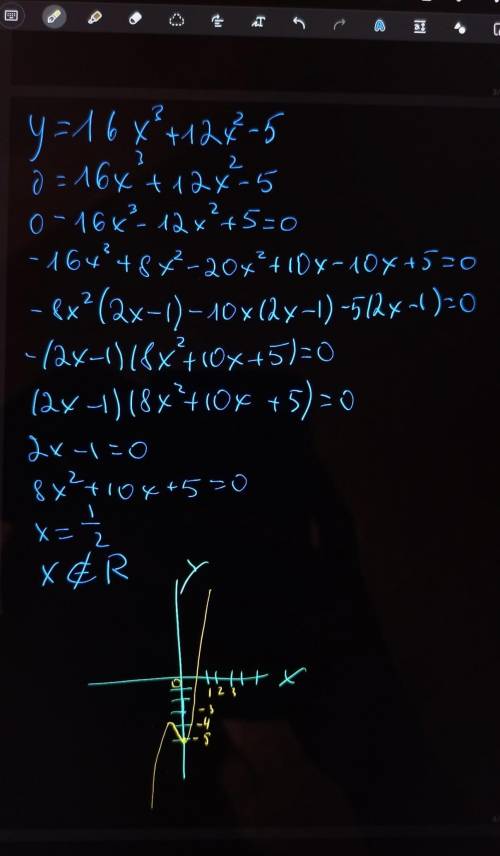 y=16x³+12x²-5
0=16x³+12x²-5
0-16x³-12x²+5=0
-16x³+8x²-20x²+10x-10x+5=0
-8x²(2x-1)-10x(2x-1)-5(2x-1)=0
-(2x-1)(8x²+10x+5)=0
(2x-1)(8x²+10x+5)=0
2x-1=0
8x²+10x+5=0
x=1/2
x∉R
Y
0 X
1 2 3
-3
-4
-5